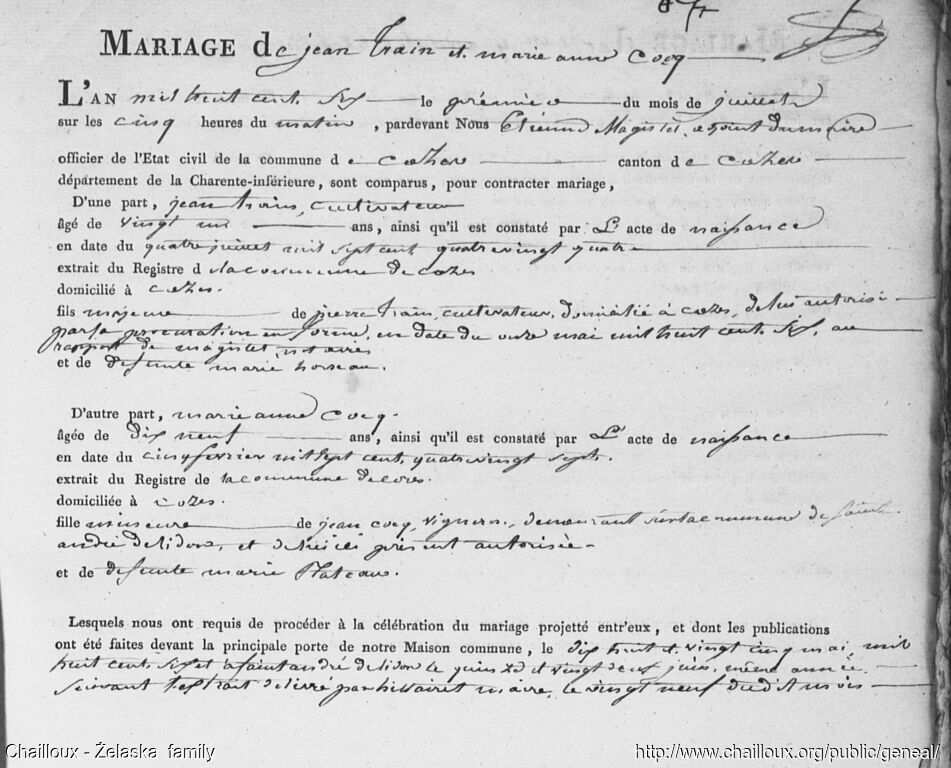 MARIAGE de jean train et marie anne Cocq
L'AN mil huit cent six le premier du mois de juillet
sur les cinq heures du matin, pardevant Nous Etienne Magistel, adjoint du maire
officier de l'Etat civil de la commune de cozes canton de cozes
département de la Charente-inférieure, sont comparus, pour contracter mariage,
D'une part, jean train, cultivateur
âgé de vingt un ans, ainsi qu'il est constaté par L'acte de naissance
en date du quatre juillet mil sept cent quatre vingt quatre
extrait du Registre de la commune de cozes
domicilié à cozes.
fils majeur de pierre train, cultivateur, domicilié à cozes, de lui autorisé
par sa procuration en forme, en date du onze mai mil huit cent six, au
rapport de magistel, notaire
et de defunte marie
D'autre part, marie anne Cocq.
âgée de dix neuf ans, ainsi qu'il est constaté par L'acte de naissance
en date du cinq fevrier mil sept cent quatre vingt sept.
extrait du Registre de la commune de cozes.
domiciliée à cozes.
fille mineure de jean cocq, vigneron, demeurant sur la commune de saint
andré de lidon, et de lui ici présent autorisée
et de defunte marie Plateau.
Lesquels nous ont requis de procéder à la célébration du mariage projetté entr'eux, et dont les publications
ont été faites devant la principale porte de notre Maison commune, le dix huit et vingt cinq mai, mil
huit cent six et a saint andré de lidon le quinze et vingt deux juin, même année
suivant l'extrait délivré par hillairet maire, le vingt neuf dudit mois
Chailloux - Żelaska family
http://www.chailloux.org/public/geneal/